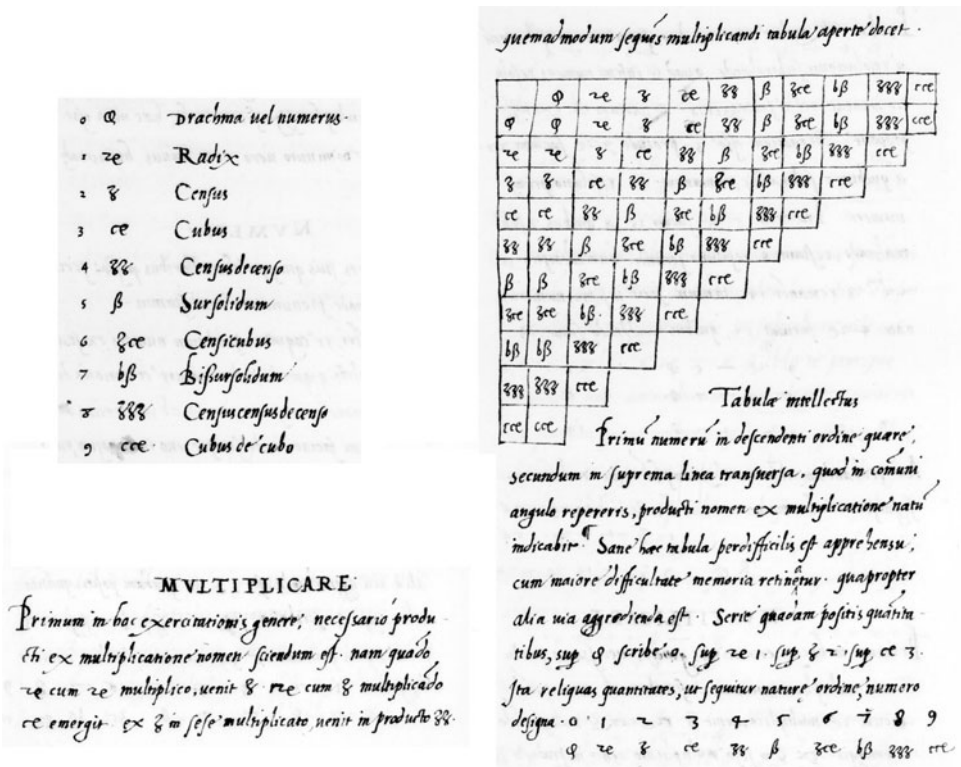 0 φ Drachma uel numerus.
1 ꝛe Radix
2 ʒ Census
3 ce Cubus
4 ʒʒ Censusdecenso
5 ß Sursolidum
6 ʒce Censicubus
7 bß Bißursolidum
8 ʒʒʒ Censuscensusdecenso
9 cce. Cubus de cubo
MVLTIPLICARE
Primum in hoc exercitationis genere, necessario produ
cti ex multiplicatione nomen sciendum est. nam quādo
ꝛe cum ꝛe multiplico, uenit ʒ. ꝛe cum ʒ multiplicādo
ce emergit. ex ʒ in sese multiplicato, uenit in producto ʒʒ.
quemadmodum sequēs multiplicandi tabula aperte docet.
φ ꝛe ʒ ce ʒʒ ß ʒce bß ʒʒʒ cce
φ φ ꝛe ʒ ce ʒʒ ß ʒce bß ʒʒʒ cce
ꝛe ꝛe ʒ ce ʒʒ ß ʒce bß ʒʒʒ cce
ʒ ʒ ce ʒʒ ß ʒce bß ʒʒʒ cce
ce ce ʒʒ ß ʒce bß ʒʒʒ cce
ʒʒ ʒʒ ß ʒce bß ʒʒʒ cce
ß ß ʒce bß ʒʒʒ cce
ʒce ʒce bß. ʒʒʒ cce
bß bß ʒʒʒ cce
ʒʒʒ ʒʒʒ cce
cce cce
Tabulæ intellectus
Primū numerū in descendenti ordine quare,
secundum in suprema linea transuersa. quod in comūni
angulo repereris, producti nomen ex multiplicatione natū
indicabit. ¶ Sane hæc tabula perdifficilis est apprehensu,
cum maiore difficultate memoria retinētur. quapropter
alia uia aggredienda est. Serie quadam positis quātita
tibus, sup φ scribe 0. sup ꝛe 1. sup ʒ 2. sup ce 3.
Ita reliquas quantitates, ut sequitur naturæ ordine, numero
designa. 0 1 2 3 4 5 6 7 8 9
φ ꝛe ʒ ce ʒʒ ß ʒce bß ʒʒʒ cce